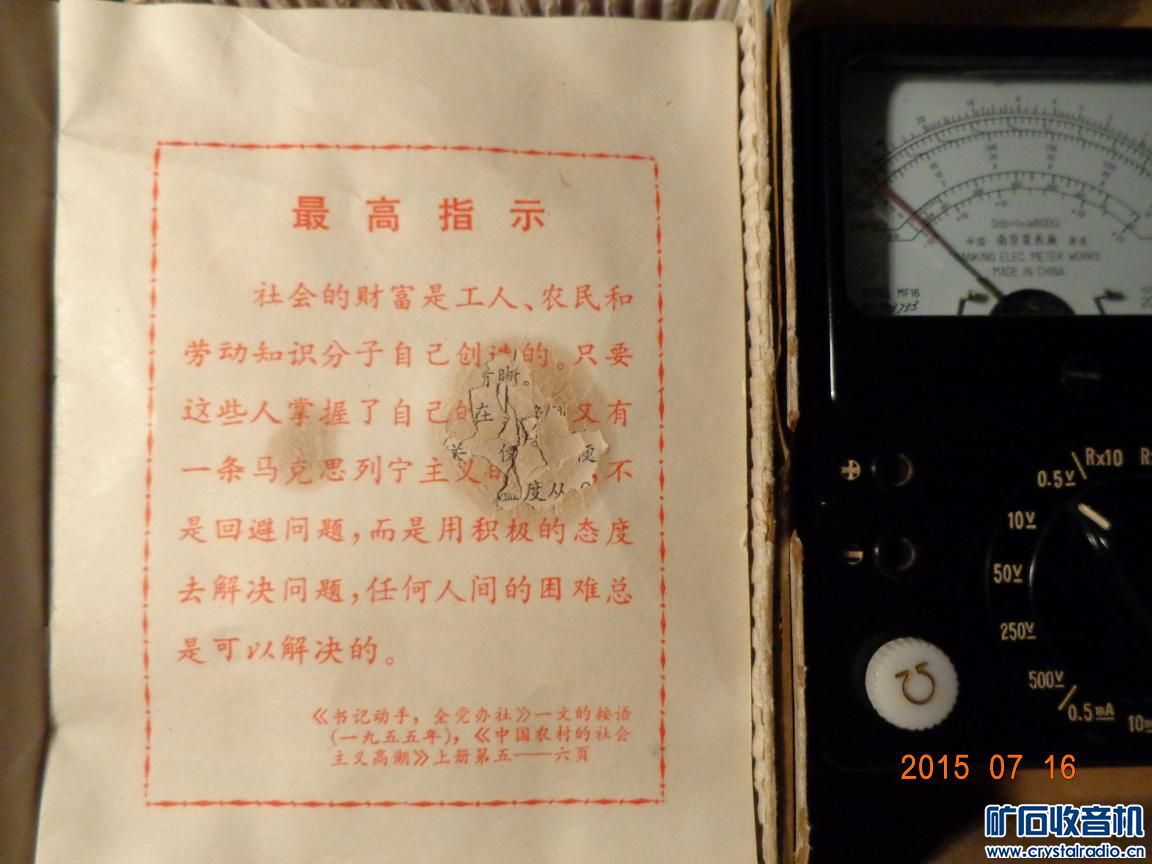 最高指示
社会的财富是工人、农民和
劳动知识分子自己创造的。只要
这些人掌握了自己的 又有
一条马克思列宁主义的 ,不
是回避问题,而是用积极的态度
去解决问题,任何人间的困难总
是可以解决的。
《书记动手,全党办社》一文的按语
(一九五五年),《中国农村的社会
主义高潮》上册第五——六页
晰。
在
便
度从
中国 南京电表厂
NANKING ELEC. METER WORKS
MADE IN CHINA
MF16
Rx10
0.5V
10V
50V
250V
500V
0.5mA
10m
Ω
2015 07 16
矿石收音机
www.crystalradio.cn